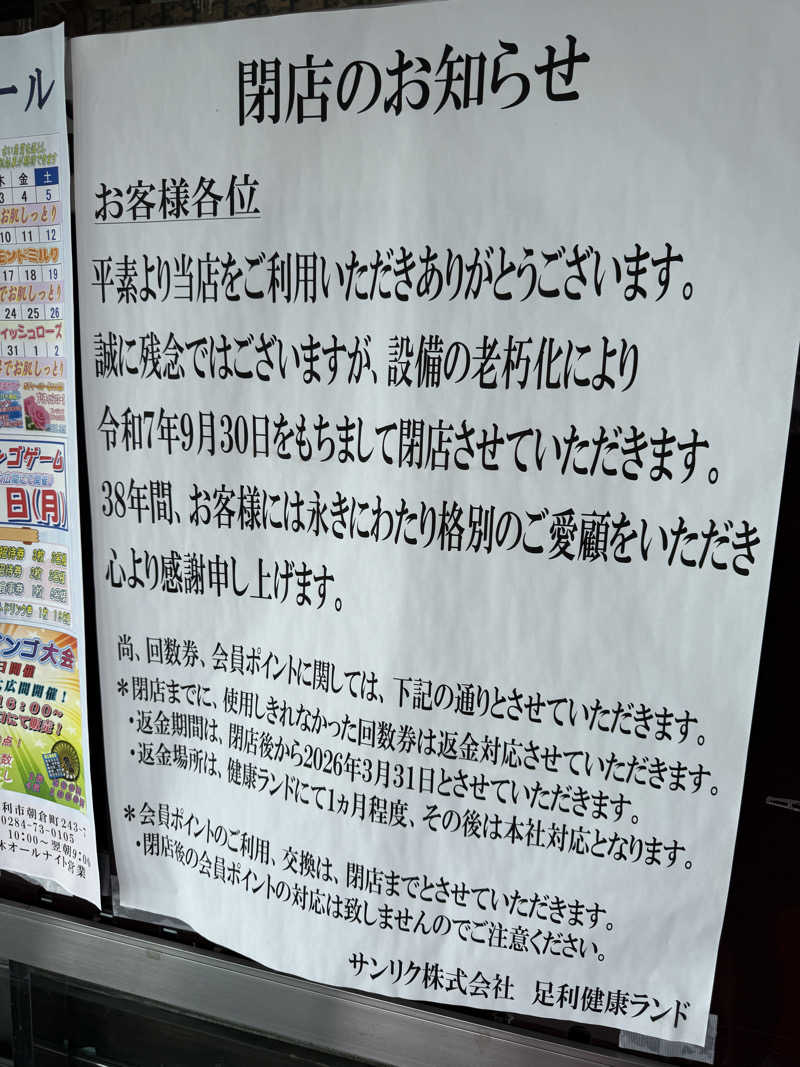 閉店のお知らせ
お客様各位
平素より当店をご利用いただきありがとうございます。
誠に残念ではございますが、設備の老朽化により
令和7年9月30日をもちまして閉店させていただきます。
38年間、お客様には永きにわたり格別のご愛顧をいただき
心より感謝申し上げます。
尚、回数券、会員ポイントに関しては、下記の通りとさせていただきます。
＊閉店までに、使用しきれなかった回数券は返金対応させていただきます。
・返金期間は、閉店後から2026年3月31日とさせていただきます。
・返金場所は、健康ランドにて1ヵ月程度、その後は本社対応となります。
＊会員ポイントのご利用、交換は、閉店までとさせていただきます。
・閉店後の会員ポイントの対応は致しませんのでご注意ください。
サンリク株式会社 足利健康ランド
ール
木 金 土
3 4 5
お肌しっとり
10 11 12
モンドミルク
17 18 19
でお肌しっとり
24 25 26
ィッシュローズ
31 1 2
でお肌しっとり
ンゴゲーム
日(月)
招待券
招待券
ドリンク券
ンゴ大会
日開催
広間開催！
16:00～
にて販売！
点！
数
利市朝倉町243-
0284-73-0105
10:00～翌朝9:0
オールナイト営業